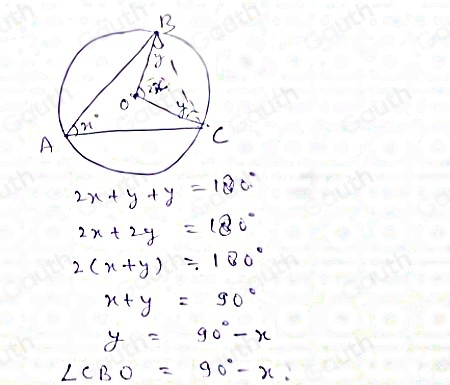 B
y
O 2x
y
x°
A
C
2x + y + y = 180°
2x + 2y = 180°
2(x + y) = 180°
x + y = 90°
y = 90° - x
∠CBO = 90° - x.